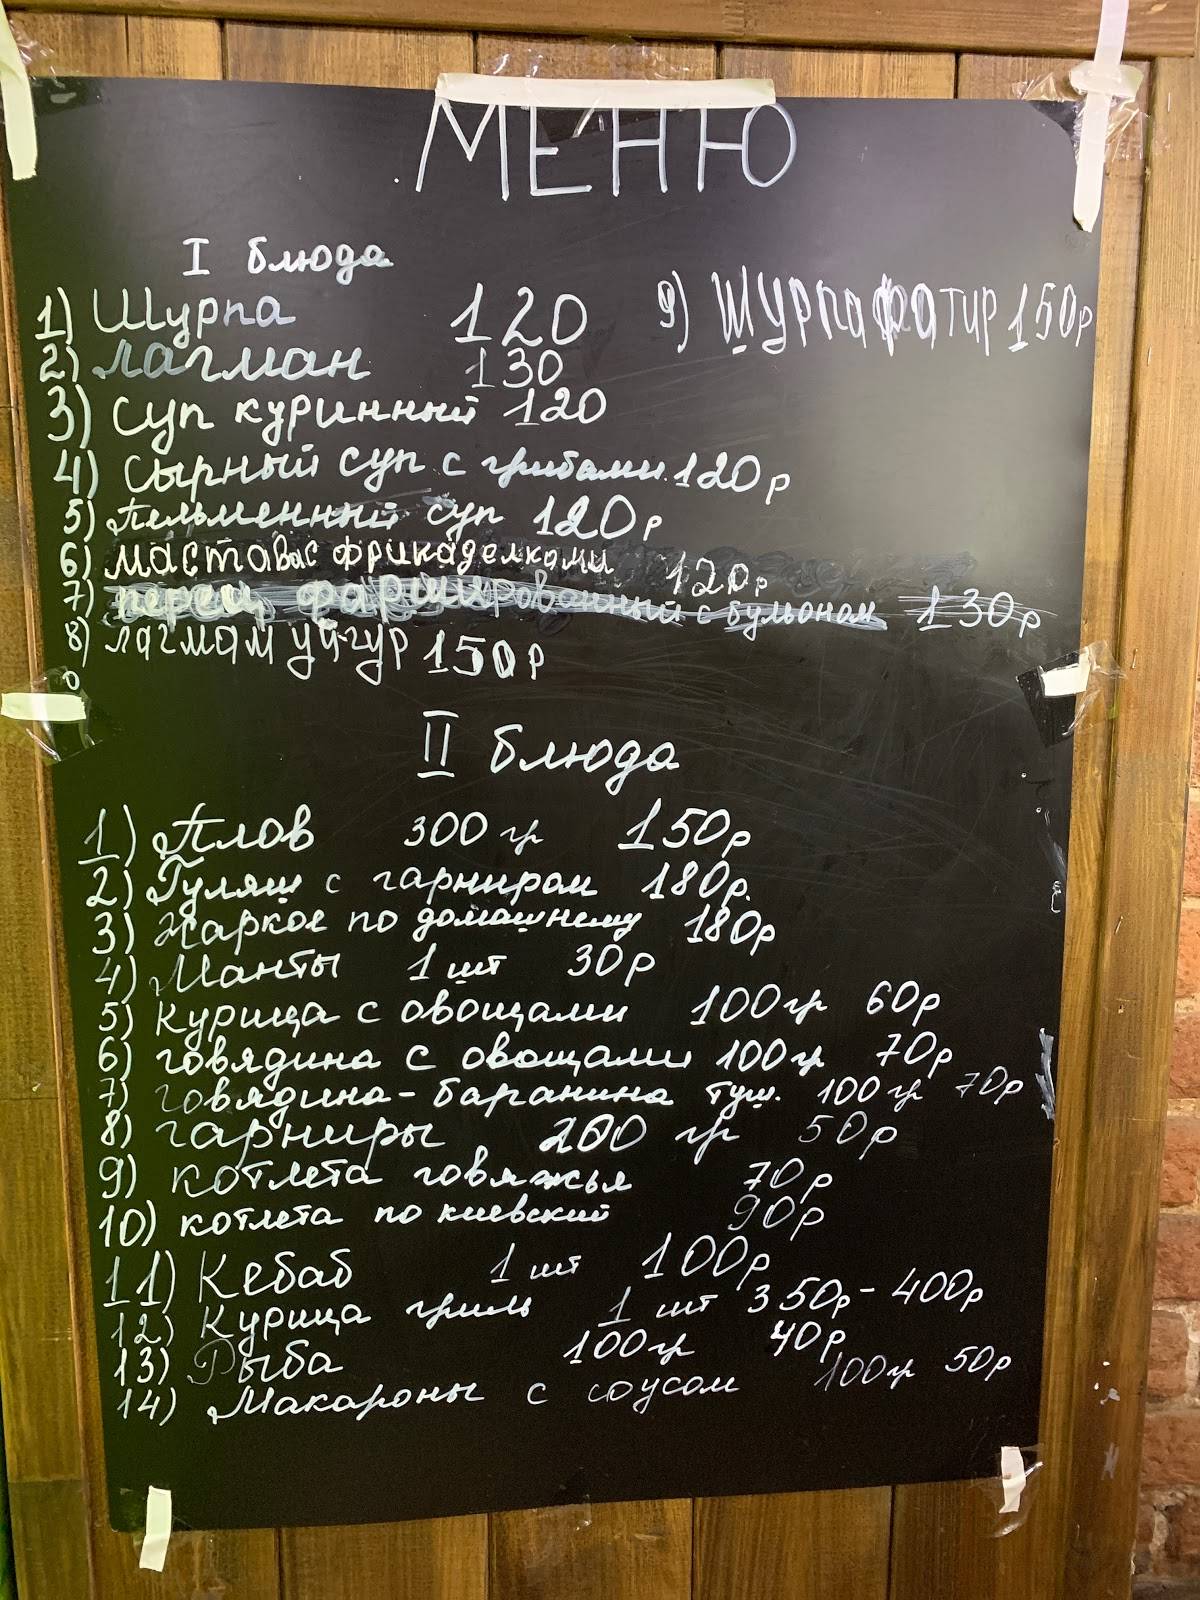 МЕНЮ
I блюда
1) Шурпа 120
9) Шурпа фатир 150р
2) Лагман 130
3) Суп куринный 120
4) Сырный суп с грибами 120р
5) Пельменный суп 120р
6) Мастава с фрикаделками 120р
7) перец фаршированный с бульоном 130р
8) Лагмам уйгур 150р
II блюда
1) Плов 300 гр 150р
2) Гуляш с гарниром 180р.
3) Жаркое по домашнему 180р
4) Манты 1 шт 30р
5) Курица с овощами 100гр 60р
6) говядина с овощами 100гр 70р
7) говядина-баранина туш. 100гр 70р
8) гарниры 200 гр 50р
9) котлета говяжья 70р
10) котлета по киевский 90р
11) Кебаб 1 шт 100р
12) Курица гриль 1 шт 350р-400р
13) Рыба 100гр 40р
14) Макароны с соусом 100гр 50р